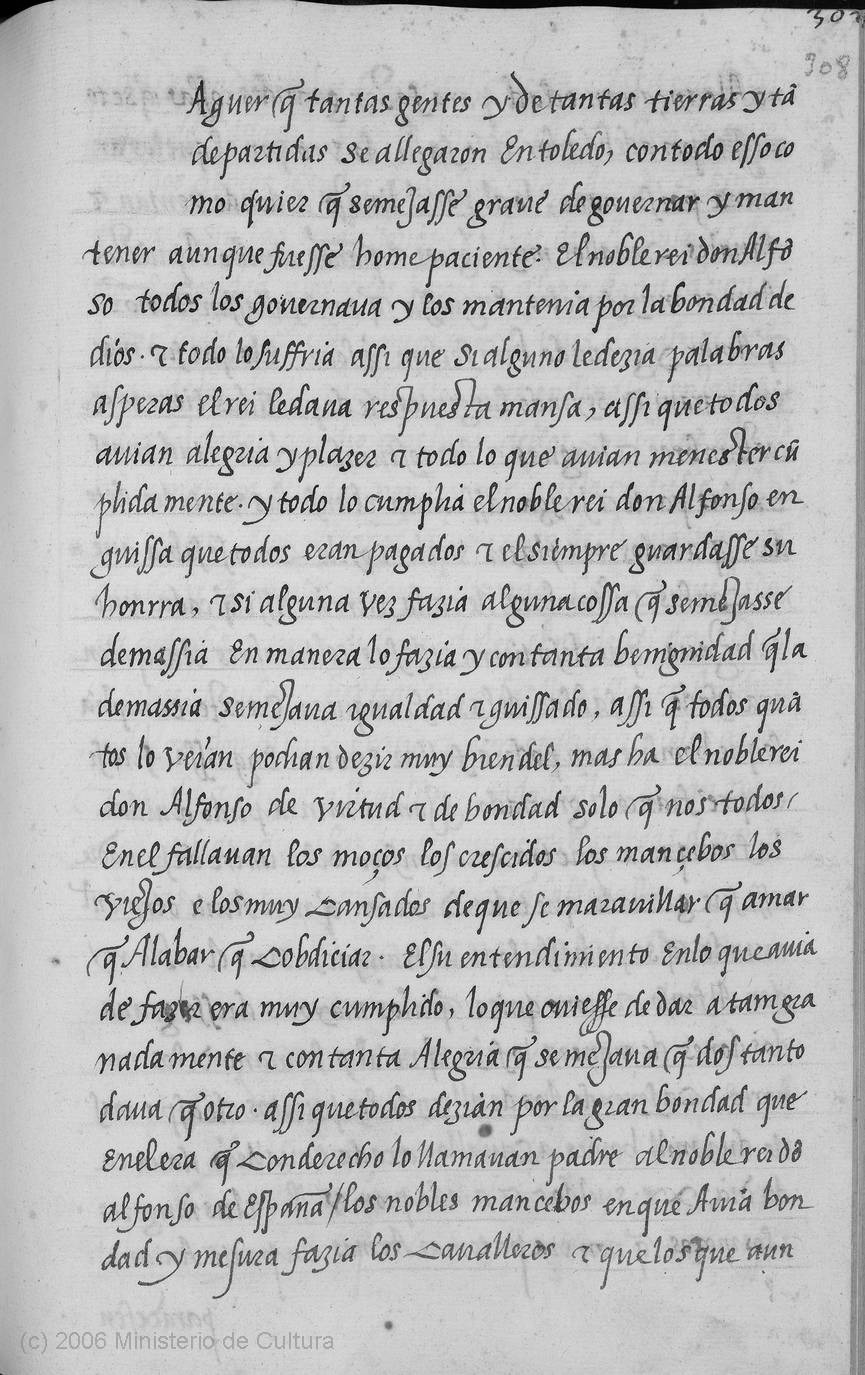 307
308
Aguer q̃ tantas gentes y de tantas tierras y tã
departidas se allegaron En toledo, con todo esso co
mo quier q̃ semejasse grave de governar y man
tener aunque fuesse home paciente. El noble rei don Alfõ
so todos los governava y los mantenia por la bondad de
dios. τ todo lo suffria assi que si alguno le dezia palabras
asperas el rei le dava respuesta mansa, assi que todos
avian alegria y plazer τ todo lo que avian menester cũ
plida mente. y todo lo cumplia el noble rei don Alfonso en
guissa que todos eran pagados τ el siempre guardasse su
honrra, τ si alguna vez fazia alguna cossa q̃ semejasse
demassia En manera lo fazia y con tanta benignidad q̃ la
demassia semejava igualdad τ guissado, assi q̃ todos quã
tos lo veian podian dezir muy bien del, mas ha el noble rei
don Alfonso de virtud τ de bondad solo q̃ nos todos/
En el fallavan los moços los crescidos los mançebos los
viejos e los muy cansados de que se maravillar q̃ amar
q̃ Alabar q̃ cobdiciar. El su entendimiento En lo que avia
de fazer era muy cumplido, lo que oviesse de dar a tam gra
nada mente τ con tanta Alegria q̃ semejava q̃ dos tanto
dava q̃ otro. assi que todos dezian por la gran bondad que
En el era q̃ con derecho lo llamavan padre al noble rei dõ
alfonso de España/ los nobles mancebos en que Avia bon
dad y mesura fazia los cavalleros τ que los que aun
(c) 2006 Ministerio de Cultura